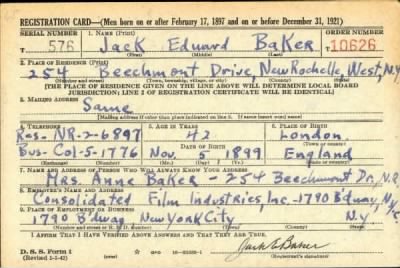 REGISTRATION CARD—(Men born on or after February 17, 1897 and on or before December 31, 1921)
SERIAL NUMBER 1. NAME (Print) ORDER NUMBER
576 Jack Eduard Baker 10626
(First) (Middle) (Last)
2. PLACE OF RESIDENCE (Print)
254 Beechmont Drive, New Rochelle, West, N.Y.
(Number and street) (Town, township, village, or city) (County) (State)
[THE PLACE OF RESIDENCE GIVEN ON THE LINE ABOVE WILL DETERMINE LOCAL BOARD
JURISDICTION; LINE 2 OF REGISTRATION CERTIFICATE WILL BE IDENTICAL]
3. MAILING ADDRESS
Same
[Mailing address if other than place indicated on line 2. If same insert word same]
4. TELEPHONE 5. AGE IN YEARS 6. PLACE OF BIRTH
Res- NR-2-6897 42 London
DATE OF BIRTH (Town or county)
Bus- Col-5-1776 Nov. 5 1899 England
(Exchange) (Number) (Mo.) (Day) (Yr.) (State or country)
7. NAME AND ADDRESS OF PERSON WHO WILL ALWAYS KNOW YOUR ADDRESS
Mrs. Anne Baker - 254 Beechmont Dr., N.R.
8. EMPLOYER'S NAME AND ADDRESS
Consolidated Film Industries, Inc. - 1790 B'dway, N.Y.
9. PLACE OF EMPLOYMENT OR BUSINESS
1790 B'dway New York City N.Y.
(Number and street or R. F. D. number) (Town) (County) (State)
I AFFIRM THAT I HAVE VERIFIED ABOVE ANSWERS AND THAT THEY ARE TRUE.
D. S. S. Form 1
(Revised 1-1-42) (over) GPO Jack E Baker